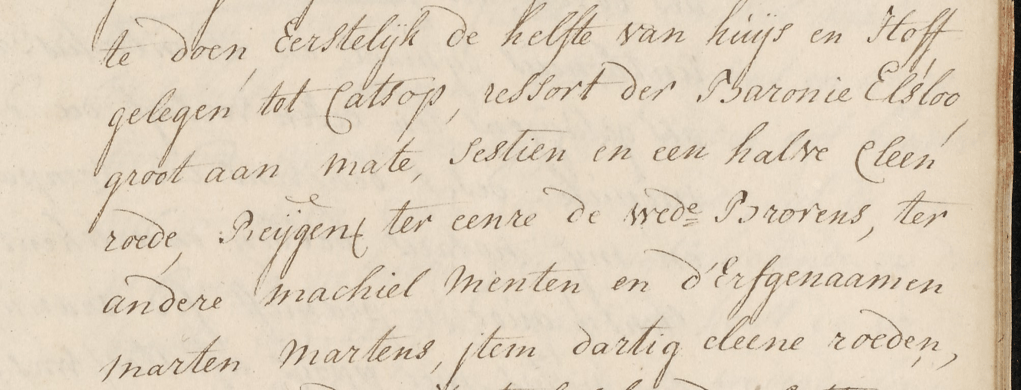 te doen, Eerstelijk de helfte van huijs en Hoff
gelegen tot Catsop, ressort der Baronie Elsloo,
groot aan mate, sestien en een halve Cleen
roede, Reijgen ter eenre de wede Brorens, ter
andere machiel Menten en d'Erfgenaamen
marten Martens, jtem dartig cleene roeden,